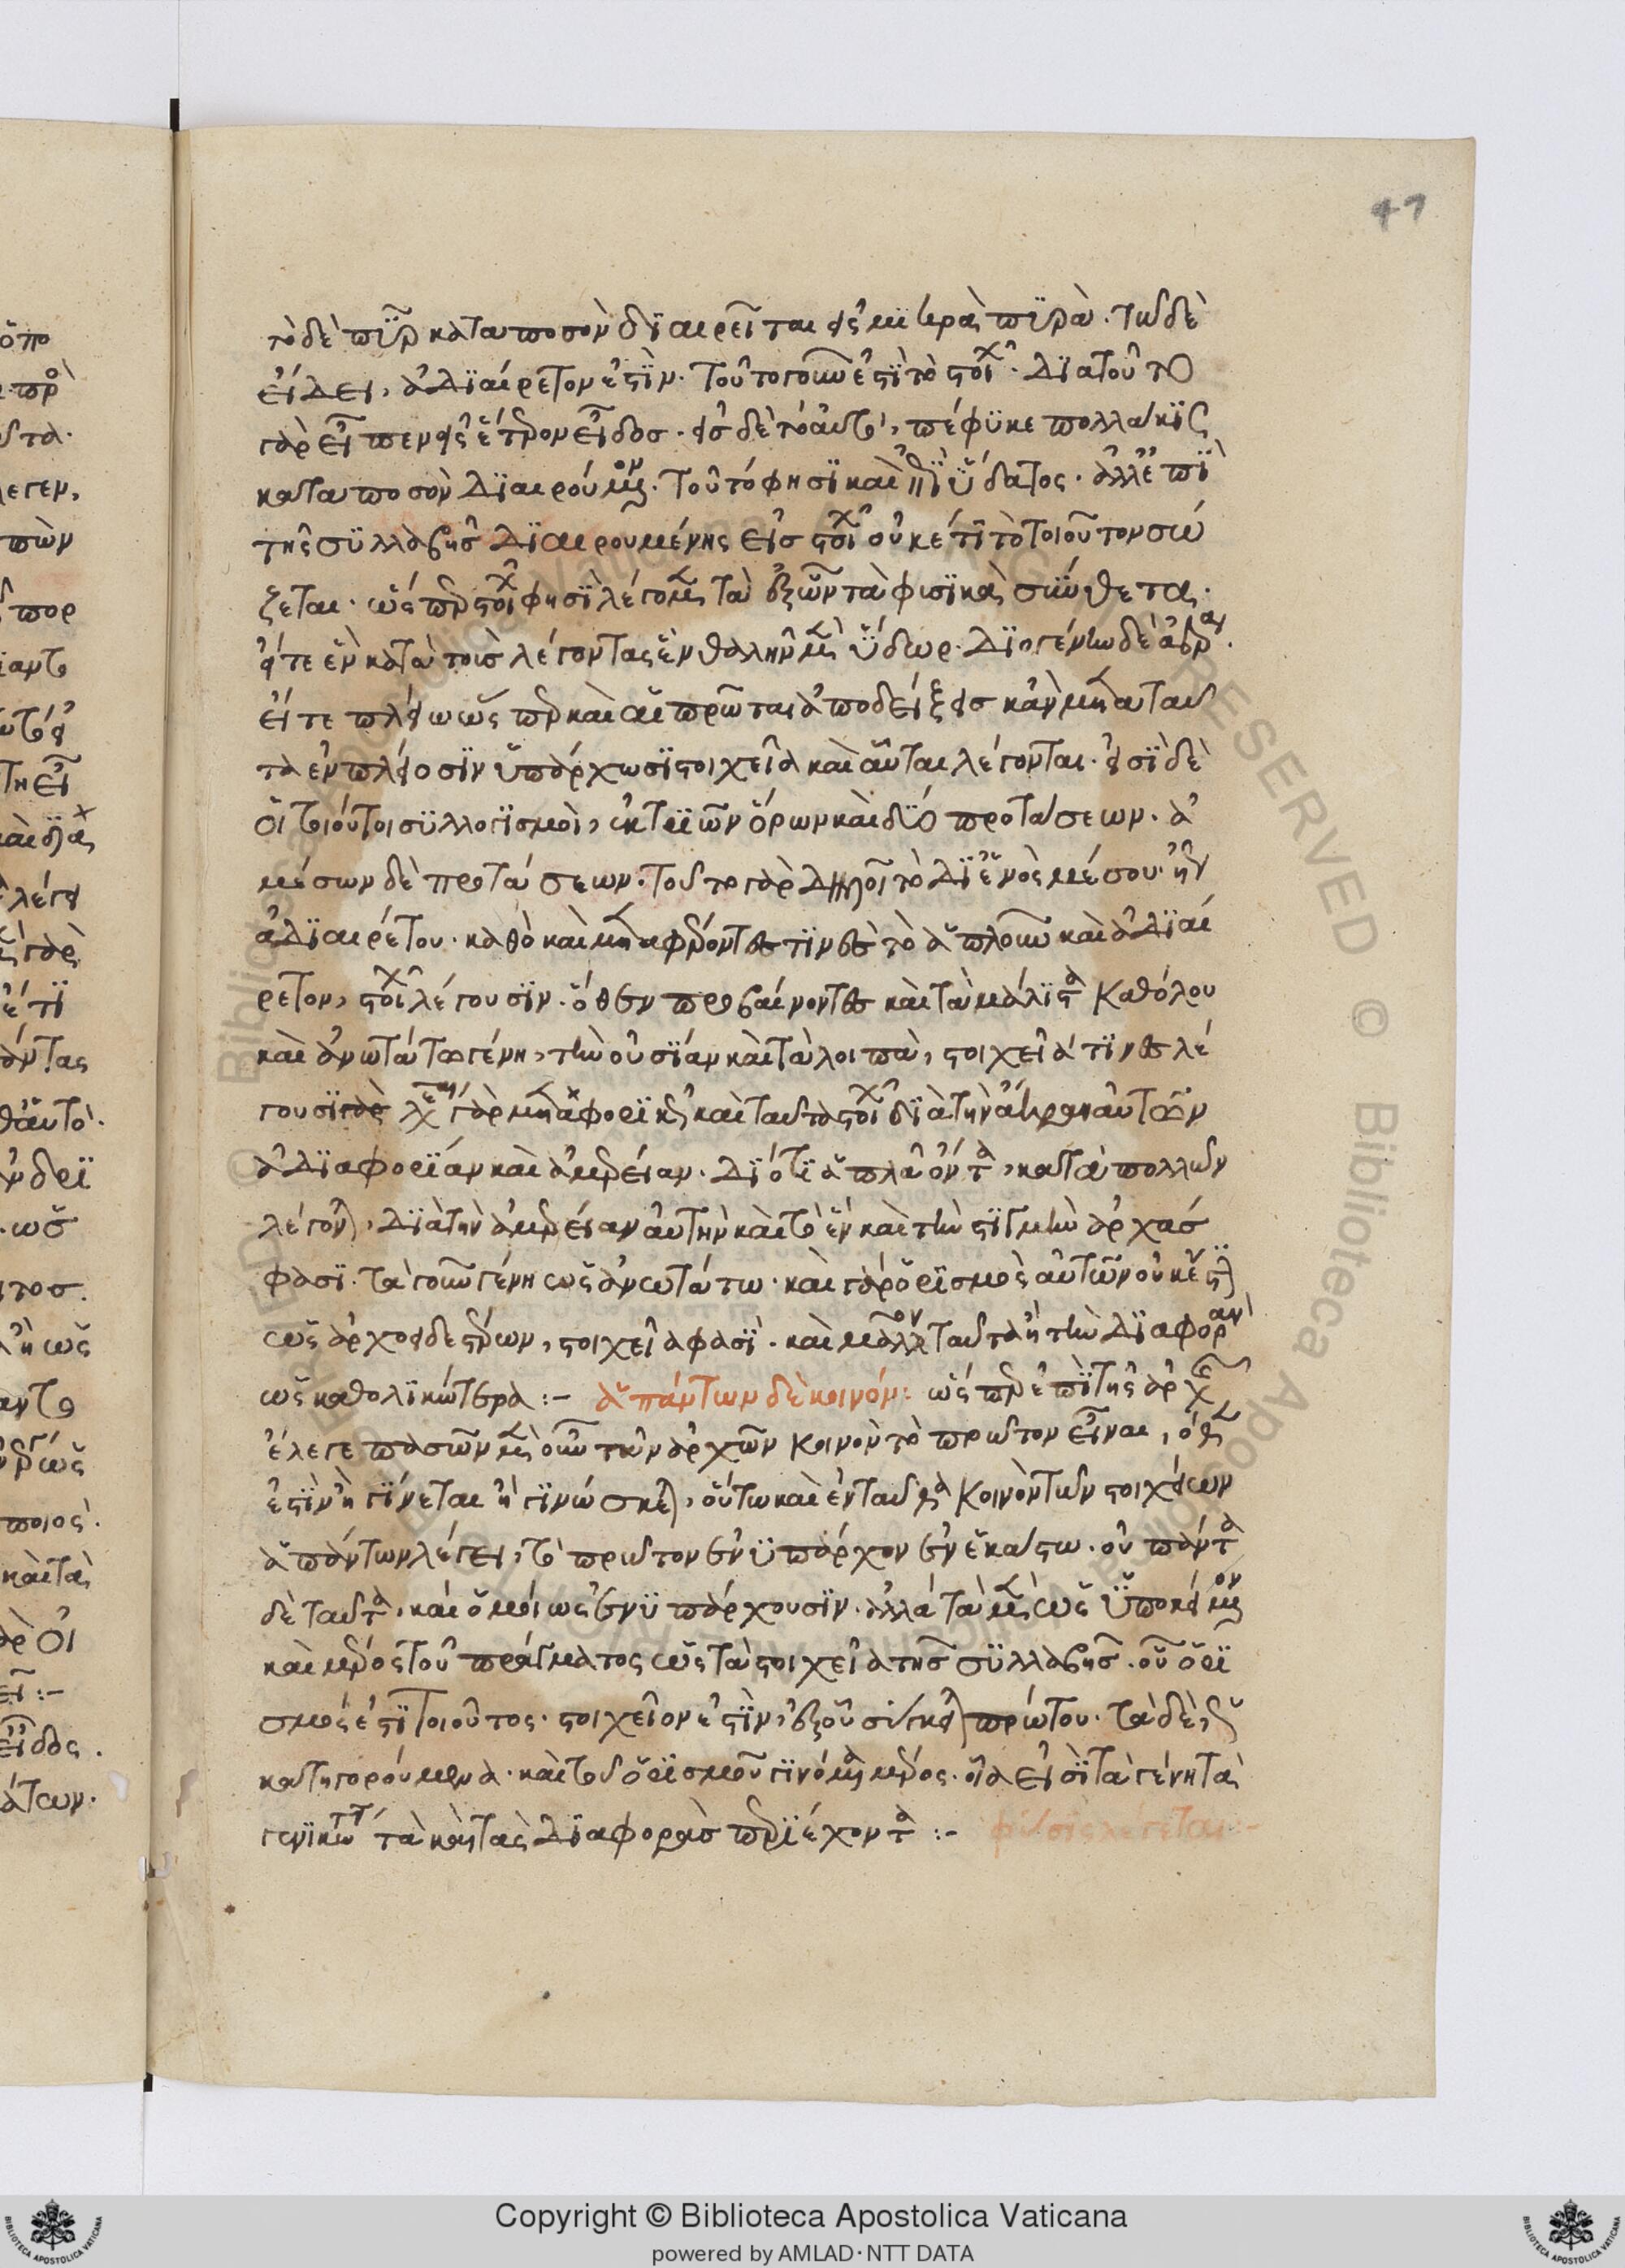 47
τὸ δὲ πῦρ κατα ποσὸν διαιρεῖται εἰς μικρὰ πυρὰ. τῶ δὲ
εἴδει, ἀδιαίρετον ἐστὶν. τοῦτο γοῦν ἐστὶ τὸ στοιχ. διατοῦτο
γὰρ εἶπεν εἰς ἕτερον εἶδος. εἰς δὲ τὸ αὐτὸ, πέφυκε πολλάκις
κατα ποσὸν διαιρούμενον. τοῦτό φησι καὶ ὕδατος. ἀλλ' ἐπὶ
τῆς συλλαβῆς διαιρουμένης εἰς στοιχ οὐκέτι τὸ τοιοῦτον σώ
ζεται. ὥσπερ στοιχ φησὶ λέγομεν τὰ ἐξ ὧν τὰ φυσικὰ σύνθετα.
εἴτε ἓν κατὰ τοὺς λέγοντας ἓν θαλῆν μὲν ὕδωρ. διογένην δὲ ἀέρα.
εἴτε πλείω ὥσπερ καὶ αἱ πρῶται ἀποδείξεις κἀν μὴ αὗται
τα ἐν πλείοσιν ὑπάρχωσι στοιχεῖα καὶ αὗται λέγονται. εἰσὶ δὲ
οἱ τοιοῦτοι συλλογισμοὶ, ἐκ τριῶν ὅρων καὶ δύο προτάσεων. ἀ
μέσων δὲ προτάσεων. τοῦτο γὰρ δηλοῖ τὸ δι' ἑνὸς μέσου. ἤγ
ἀδιαιρέτου. καθὸ καὶ μεταφέροντες τινὲς τὸ ἁπλοῦν καὶ ἀδιαί
ρετον, στοιχ λέγουσιν. ὅθεν προβαίνοντες καὶ τὰ μάλιστα καθόλου
καὶ ἀνωτάτω γένη, τὴν οὐσίαν καὶ τὰ λοιπὰ, στοιχεῖά τινες λέ
γουσι γὰρ μεταφορικῶς καὶ ταῦτα στοιχ διὰ τὴν ἄκραν αὐτῶν
ἀδιαφορίαν καὶ ἀμερείαν. διότι ἁπλᾶ ὄντα, κατὰ πολλῶν
λέγονται, διὰ τὴν ἀμερείαν αὐτὴν καὶ τὸ ἓν καὶ τὴν στιγμὴν ἀρχὰς
φασὶ. τὰ γοῦν γένη ὡς ἀνωτάτω. καὶ γὰρ ὁρισμὸς αὐτῶν οὐκ ἔστι
ὡς ἀρχοειδεστέρων, στοιχεῖα φασὶ. καὶ μᾶλλον ταῦτα ἢ τὴν διαφορὰν
ὡς καθολικώτερα :– ἁπάντων δὲ κοινόν: ὥσπερ ἐπὶ τῆς ἀρχῆς
ἔλεγε πασῶν μὲν οὖν τῶν ἀρχῶν κοινὸν τὸ πρῶτον εἶναι, ὅθεν
ἐστὶν ἢ γίνεται ἢ γινώσκεται, οὕτω καὶ ἐνταῦθα κοινὸν τῶν στοιχείων
ἁπάντων λέγει, τὸ πρῶτον ἐνϋπάρχον ἐν ἑκάστω. οὐ πάντα
δὲ ταῦτα, καὶ ὁμοίως ἐνϋπάρχουσιν. ἀλλὰ τὰ μὲν ὡς ὑποκείμενον
καὶ μέρος τοῦ πράγματος ὡς τὰ στοιχεῖα τῆς συλλαβῆς. οὗ ὁρι
σμός ἐστι τοιοῦτος. στοιχεῖον ἐστὶν, ἐξ οὗ σύγκειται πρώτου. τὰ δὲ, ὡς
κατηγορούμενα. καὶ τοῦ ὁρισμοῦ γινόμενα μέρος. οἷα εἰσὶ τὰ γένη τὰ
γενικώτατα καὶ τὰς διαφορὰς περιέχοντα :– φύσις λέγεται :–
Copyright © Biblioteca Apostolica Vaticana
powered by AMLAD·NTT DATA